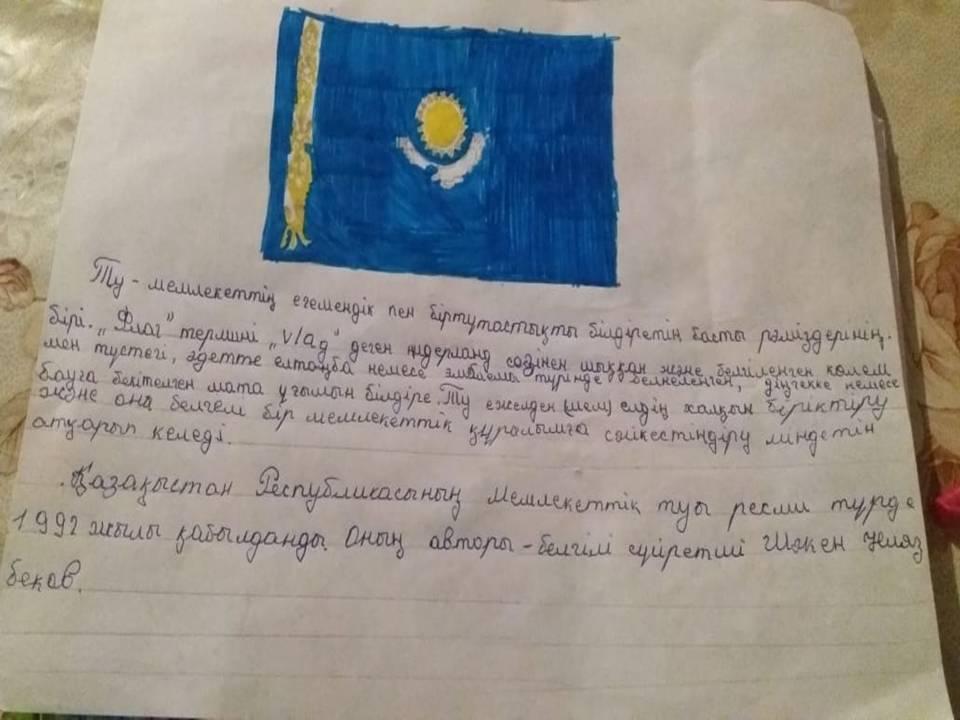 Ту - мемлекеттің егемендік пен біртутастықты білдіретін басты рәміздерінің.
бірі. „Флаг" термині „vlag" деген нидерланд сөзінен шыққан және белгіленген көлем
мен түстегі, әдетте елтаңба немесе эмблема түрінде бейнеленген, діңгекке немесе
бауға бекітелген мата ұғымын білдіре. Ту ежелден (мем) елдің халқын біріктіру
және она белгем бір мемлекеттік құралымға сәйкестіндіру миндетін
атқарып келеді.
Қазақыстан Республикасының Мемлекеттік туы ресми түрде
1992 жылы қабылданды. Оның авторы - белгілі суретші Шәкен Нияз
беков.